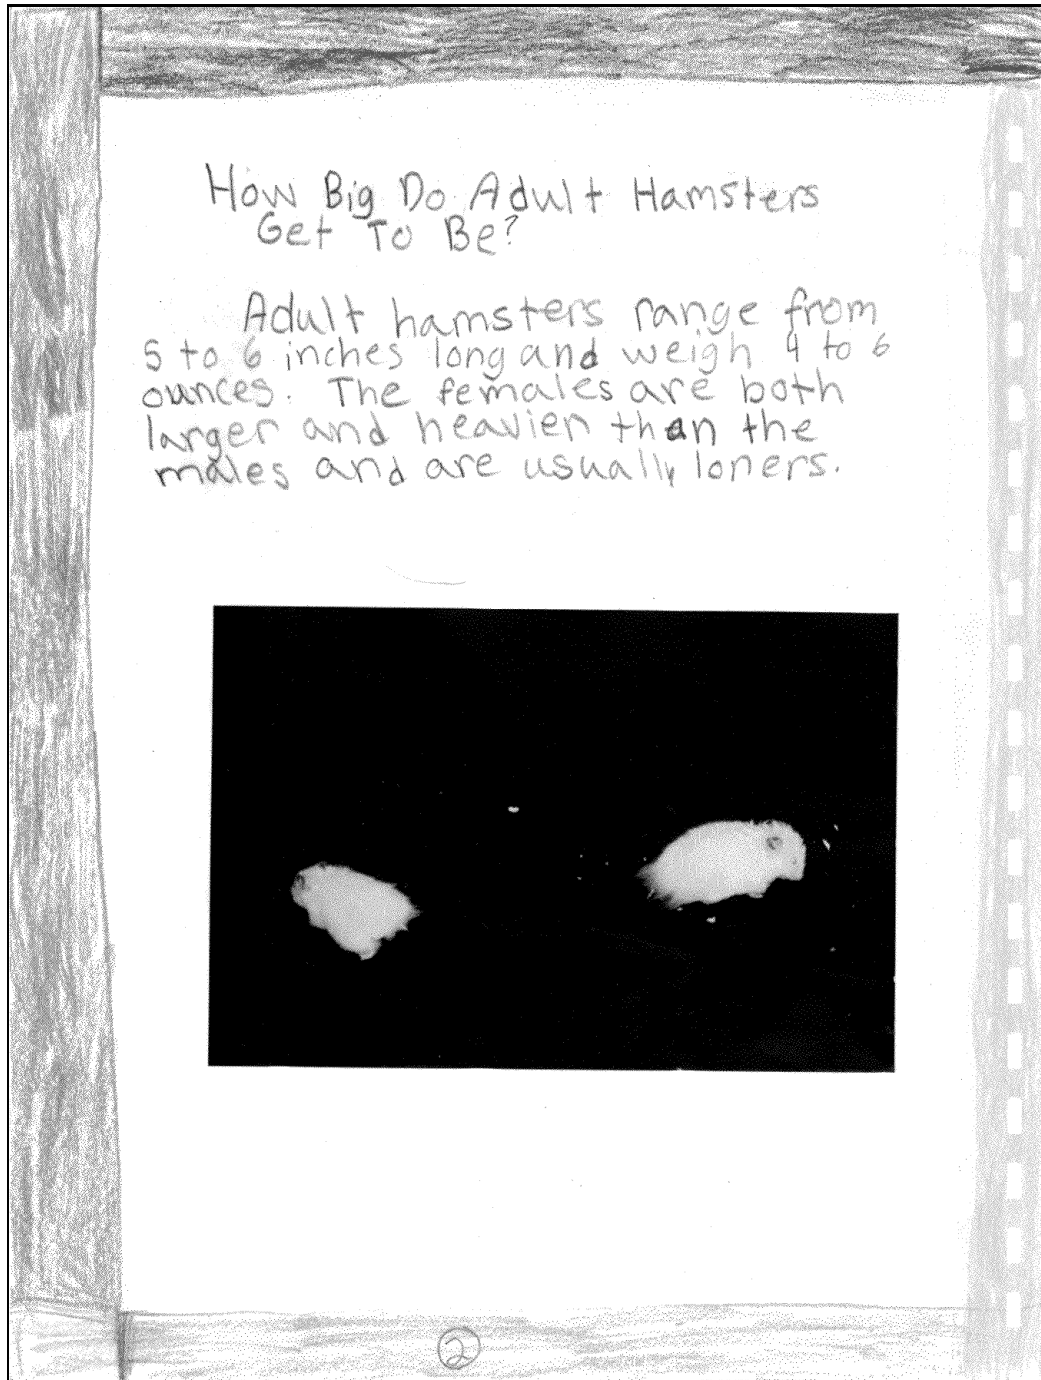 How Big Do Adult Hamsters
Get To Be?
Adult hamsters range from
5 to 6 inches long and weigh 4 to 6
ounces. The females are both
larger and heavier than the
males and are usually loners.
2